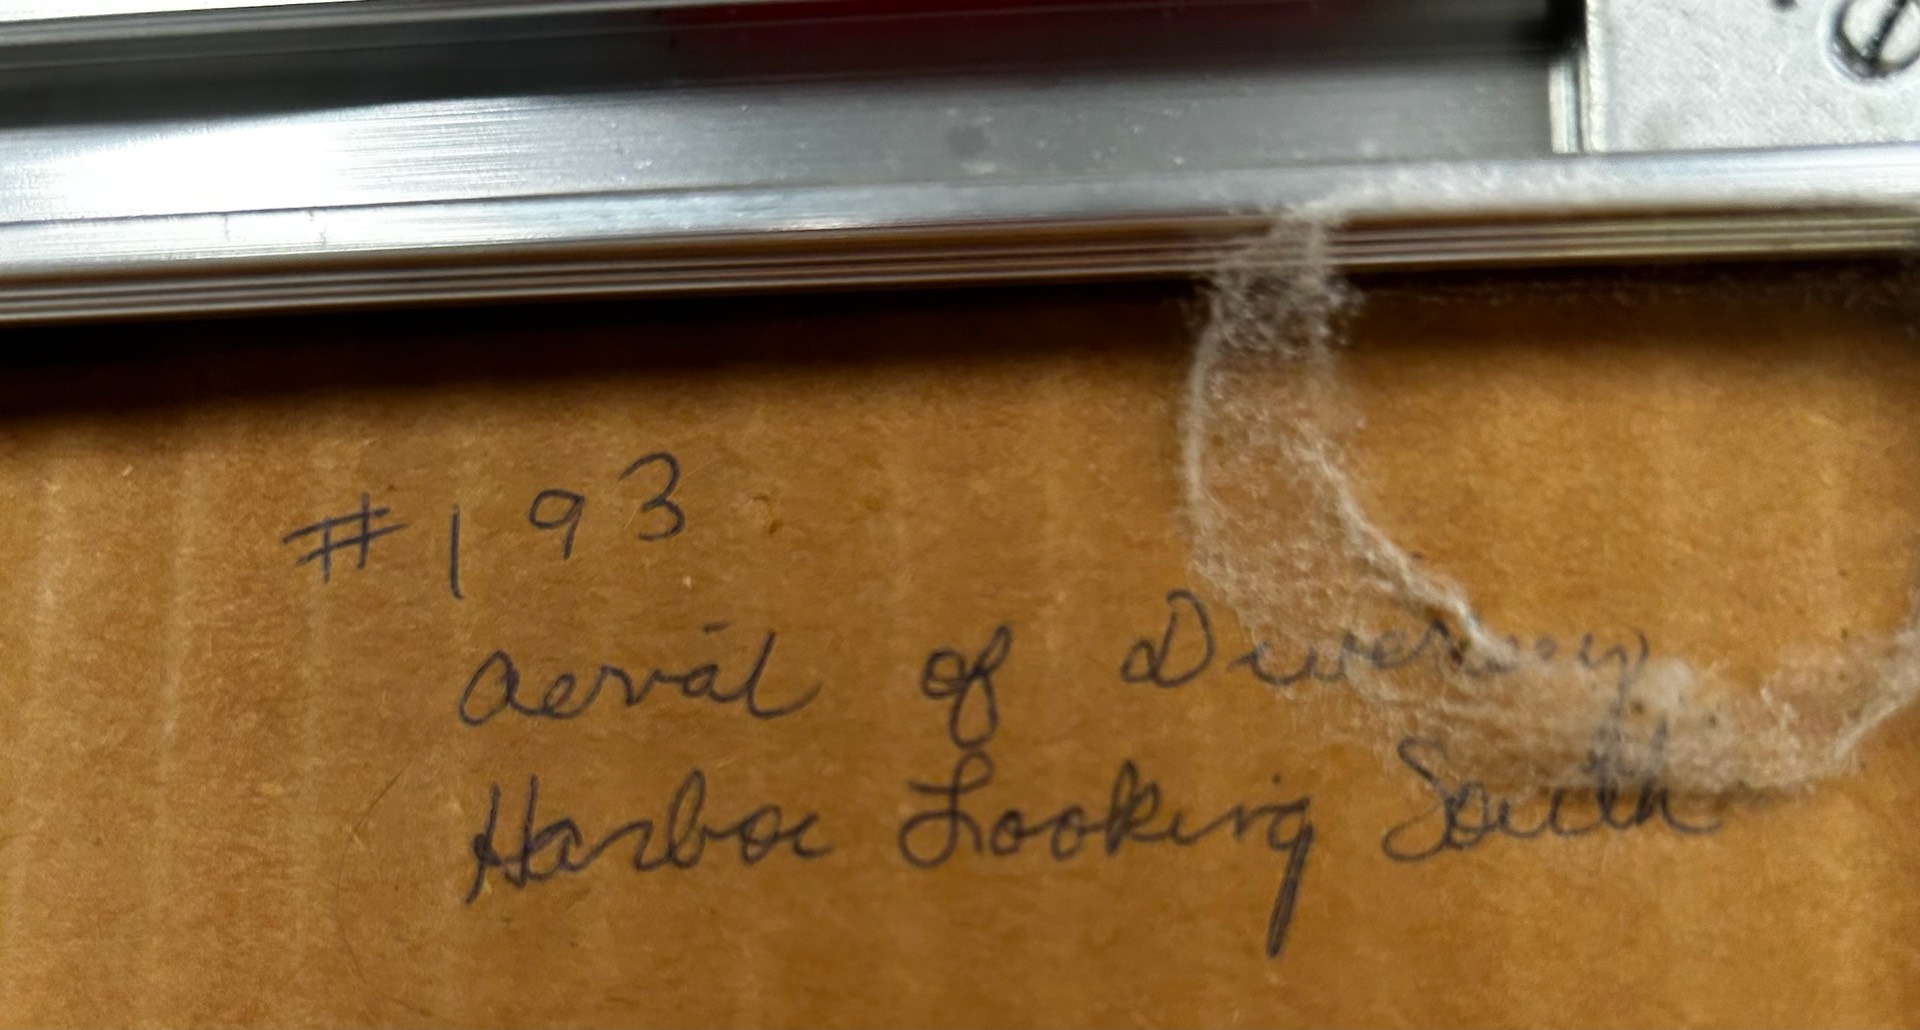 #193
aerial of Diversey
Harbor Looking South